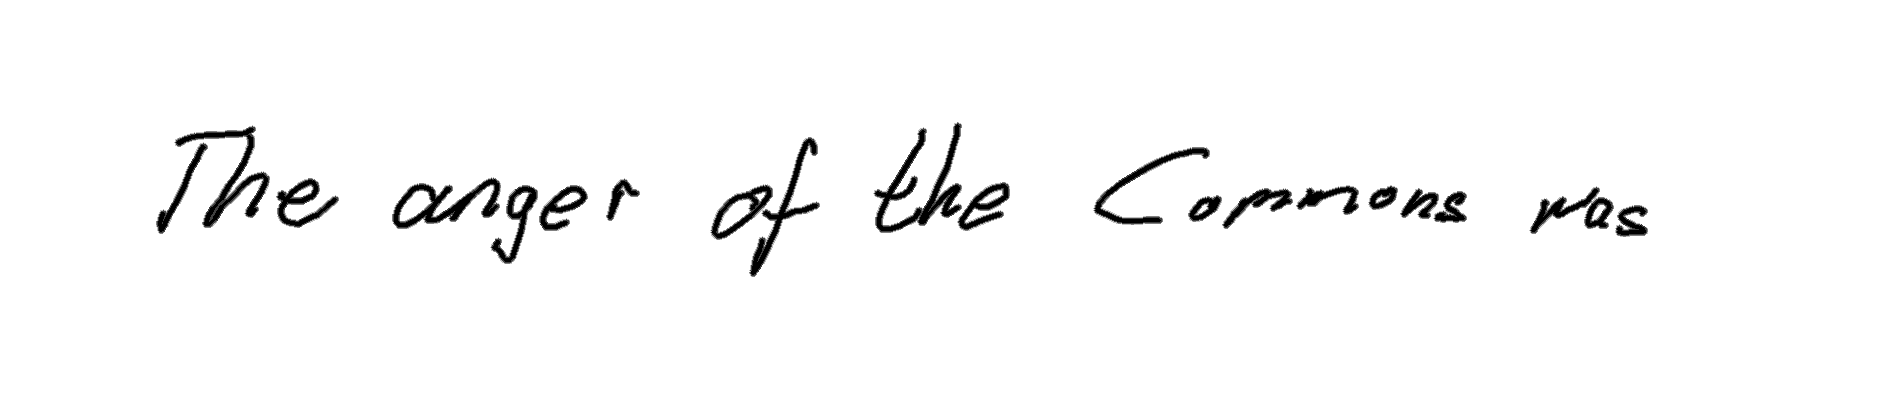 The anger of the Commons was